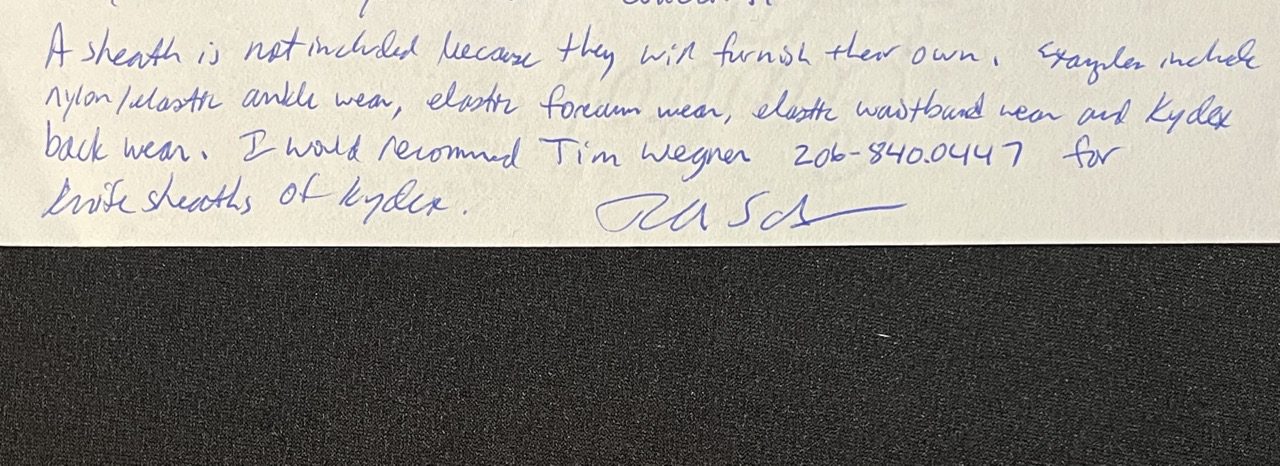 A sheath is not included because they will furnish their own. Examples include
nylon/elastic ankle wear, elastic forearm wear, elastic waistband wear and Kydex
back wear. I would recommend Tim Wegner 206-840.0447 for
knife sheaths of kydex.